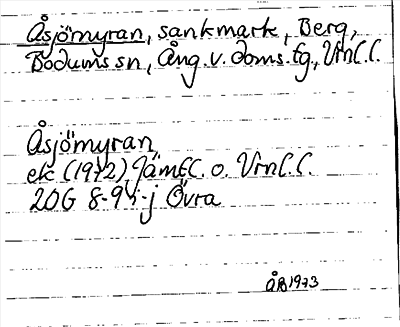 Åsjömyran, sankmark, Berg,
Bodums sn, Ång. v. doms. fg., Vrnl. C.
Åsjömyran,
ek (1972) Jämtl. o. Vrnl. C.
20G 8-9 i-j Övra
ÅB 1973